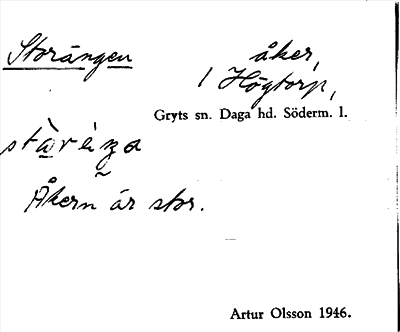 Storängen
åker,
1 Högtorp,
Gryts sn. Daga hd. Söderm. l.
Åkern är stor.
Artur Olsson 1946.